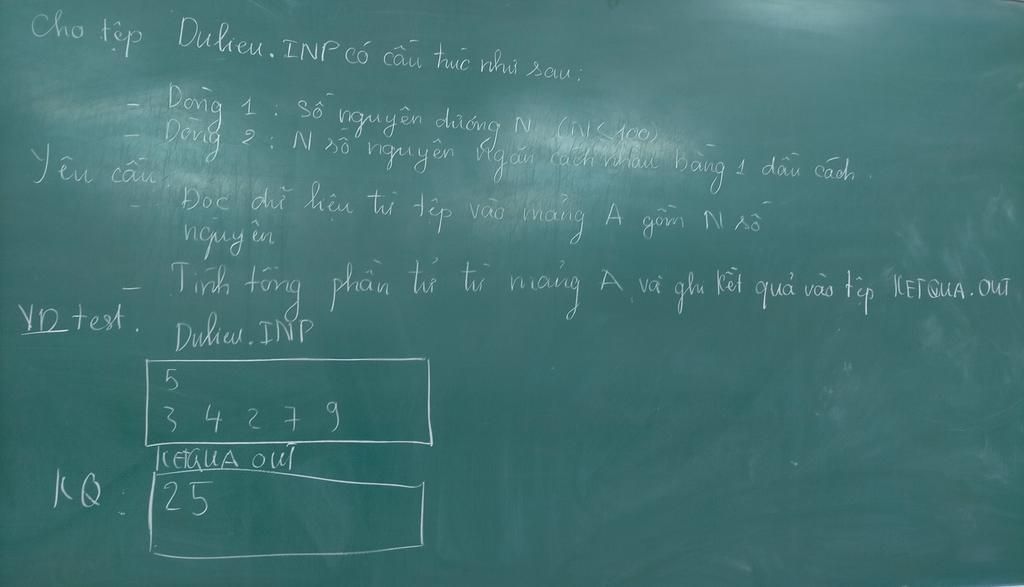 Cho tệp Dulieu.INP có cấu trúc như sau:
- Dòng 1 : Số nguyên dương N (N<100)
- Dòng 2 : N số nguyên ngăn cách nhau bằng 1 dấu cách.
Yêu cầu
- Đọc dữ liệu từ tệp vào mảng A gồm N số
nguyên
- Tính tổng phần tử từ mảng A và ghi kết quả vào tệp KETQUA.OUT
VD test.
Dulieu.INP
5
3 4 2 7 9
KETQUA OUT
KQ :
25